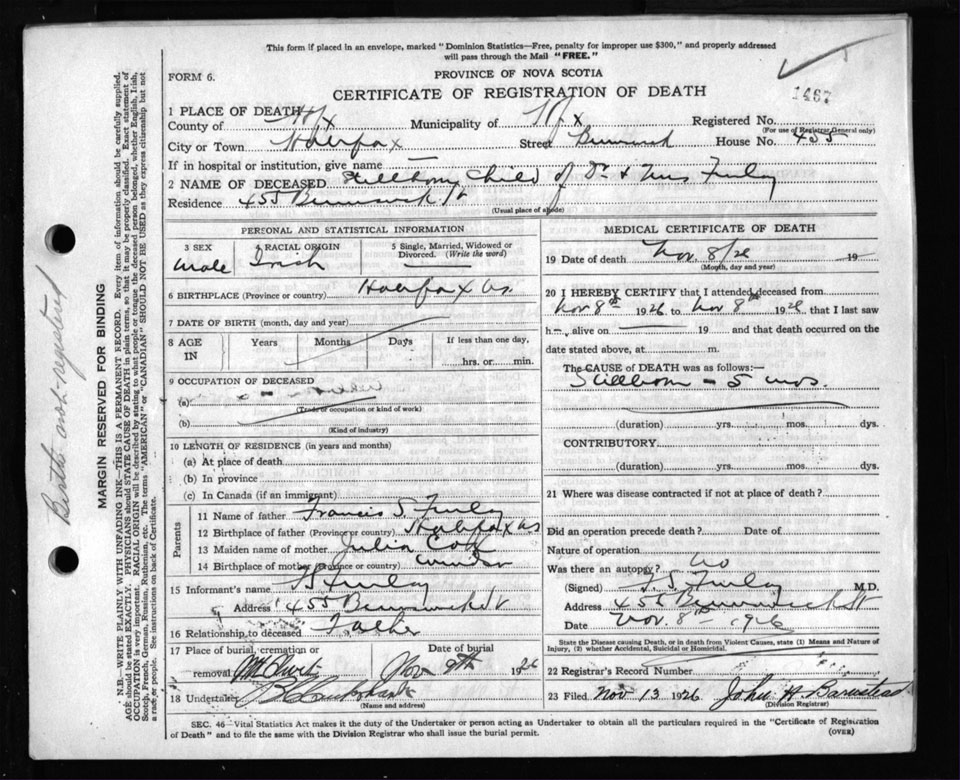 This form if placed in an envelope, marked "Dominion Statistics—Free, penalty for improper use $300," and properly addressed
will pass through the Mail "FREE."
FORM 6.
PROVINCE OF NOVA SCOTIA
CERTIFICATE OF REGISTRATION OF DEATH
1467
1 PLACE OF DEATH
County of Hfx Municipality of Hfx Registered No.
(For use of Registrar General only)
City or Town Halifax Street Brunswick House No. 455
If in hospital or institution, give name —
2 NAME OF DECEASED Stillborn Child of Dr & Mrs Finlay
Residence 455 Brunswick St
(Usual place of abode)
PERSONAL AND STATISTICAL INFORMATION
3 SEX 4 RACIAL ORIGIN 5 Single, Married, Widowed or Divorced. (Write the word)
Male Irish
6 BIRTHPLACE (Province or country) Halifax NS
7 DATE OF BIRTH (month, day and year)
8 AGE IN Years Months Days If less than one day,
hrs. or min.
9 OCCUPATION OF DECEASED
(a)
(Trade or occupation or kind of work)
(b)
(Kind of industry)
10 LENGTH OF RESIDENCE (in years and months)
(a) At place of death
(b) In province
(c) In Canada (if an immigrant)
Parents
11 Name of father Francis S. Finlay
12 Birthplace of father (Province or country) Halifax NS
13 Maiden name of mother Julia
14 Birthplace of mother (Province or country) Windsor
15 Informant's name Finlay
Address 455 Brunswick St
16 Relationship to deceased Father
17 Place of burial, cremation or removal Date of burial
Mt Olivet Nov 9th 1926
18 Undertaker
(Name and address)
MEDICAL CERTIFICATE OF DEATH
19 Date of death Nov. 8/26 19
(Month, day and year)
20 I HEREBY CERTIFY that I attended deceased from
Nov 8th 1926 to Nov 8th 1926 that I last saw
h alive on 19 and that death occurred on the
date stated above, at m.
The CAUSE of DEATH was as follows:—
Stillborn – 5 mos.
(duration) yrs. mos. dys.
CONTRIBUTORY
(duration) yrs. mos. dys.
21 Where was disease contracted if not at place of death?
Did an operation precede death? Date of
Nature of operation
Was there an autopsy? No
(Signed) F. S. Finlay M.D.
Address 455 Brunswick St
Date Nov. 8th 1926
State the Disease causing Death, or in death from Violent Causes, state (1) Means and Nature of
Injury, (2) whether Accidental, Suicidal or Homicidal.
22 Registrar's Record Number
23 Filed Nov 13 1926 John H Barnstead
(Division Registrar)
SEC. 46—Vital Statistics Act makes it the duty of the Undertaker or person acting as Undertaker to obtain all the particulars required in the "Certificate of Registration
of Death" and to file the same with the Division Registrar who shall issue the burial permit. (OVER)
Birth not registered
MARGIN RESERVED FOR BINDING
N.B.—WRITE PLAINLY, WITH UNFADING INK—THIS IS A PERMANENT RECORD. Every item of information should be carefully supplied.
AGE should be stated EXACTLY. PHYSICIANS should STATE CAUSE OF DEATH in plain terms, so that it may be properly classified. Exact statement of
OCCUPATION is very important. RACIAL ORIGIN will be described by stating to what people or tongue the deceased person belonged, whether English, Irish,
Scotch, French, German, Russian, Ruthenian, etc. The terms "AMERICAN" or "CANADIAN" SHOULD NOT BE USED as they express citizenship but not
a race or people. See instructions on back of Certificate.